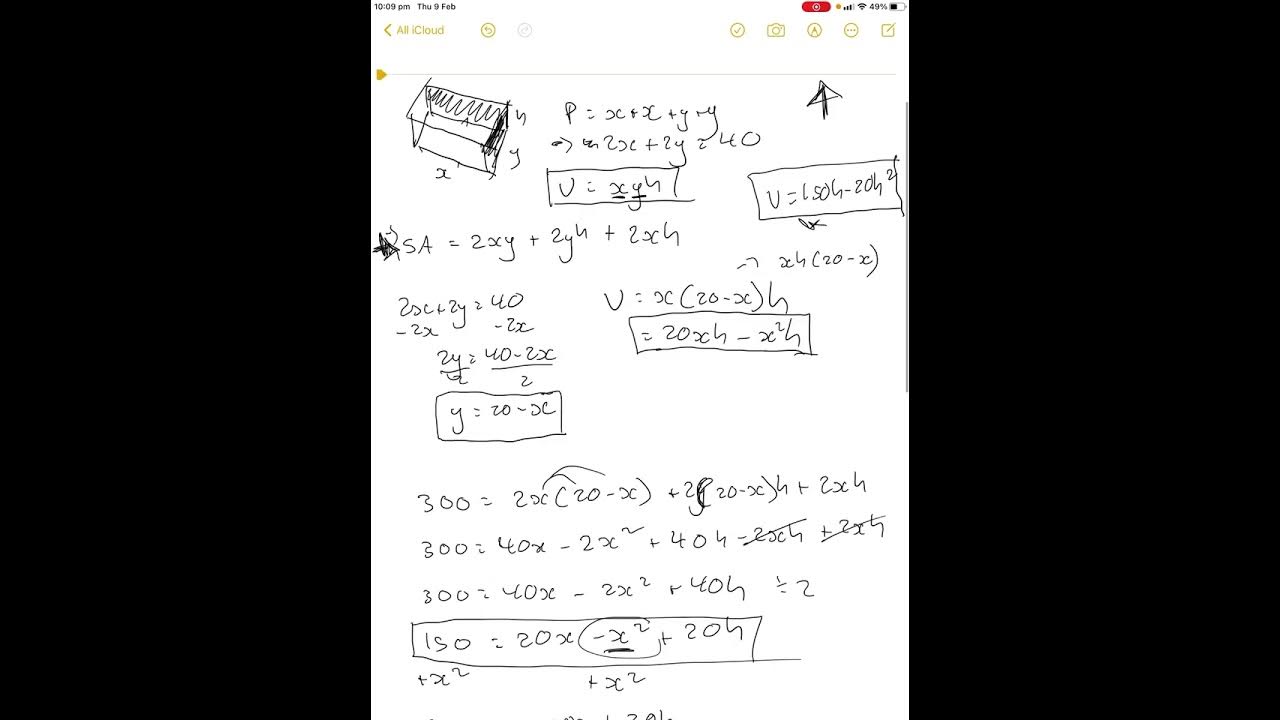 10:09 pm Thu 9 Feb
49%
All iCloud
h
y
x
P = x + x + y + y
2x + 2y = 40
V = xyh
V = 150h - 20h²
SA = 2xy + 2yh + 2xh
→ xh(20-x)
2x + 2y = 40
-2x -2x
2y = 40-2x
2 2
y = 20 - x
V = x(20-x)h
= 20xh - x²h
300 = 2x(20-x) + 2(20-x)h + 2xh
300 = 40x - 2x² + 40h - 2xh + 2xh
300 = 40x - 2x² + 40h ÷ 2
150 = 20x - x² + 20h
+x² +x²